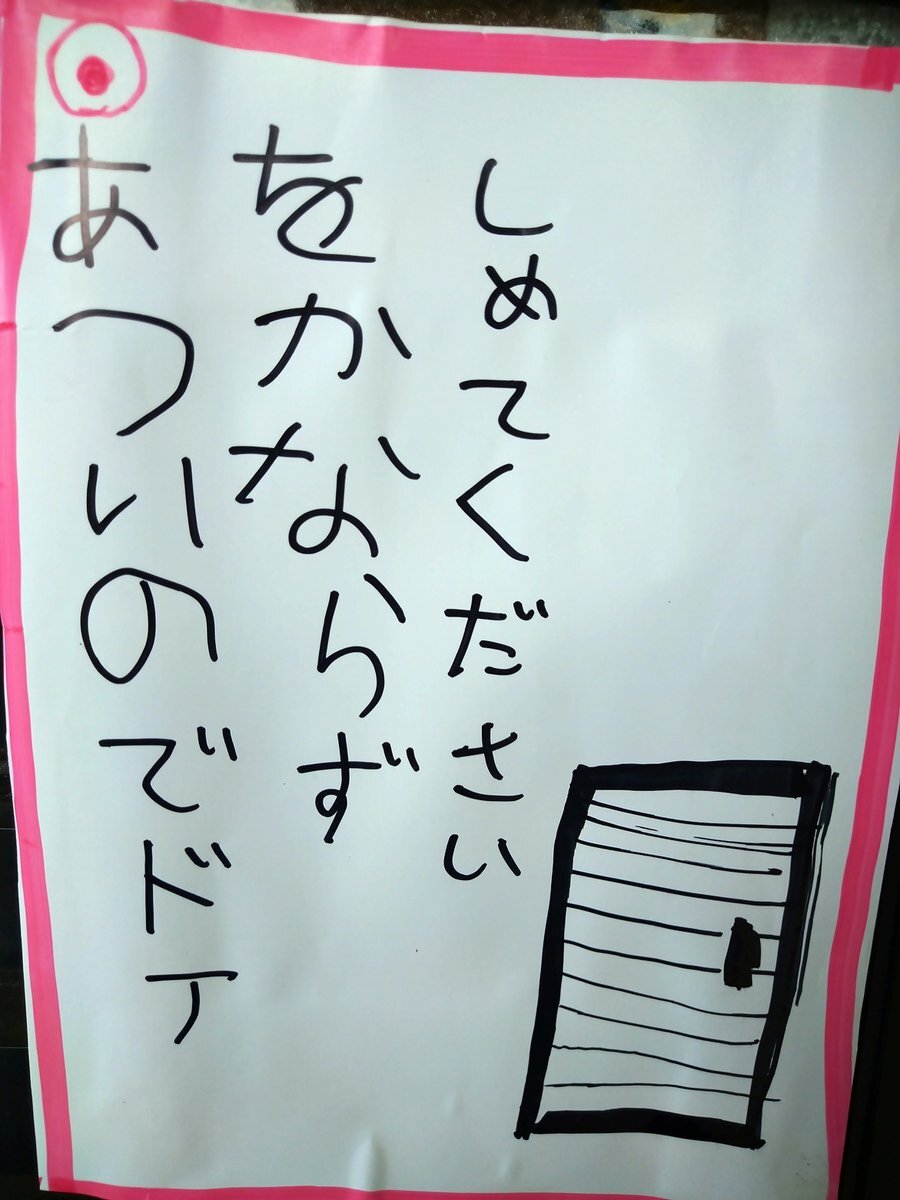 あついのでドア
をかならず
しめてください